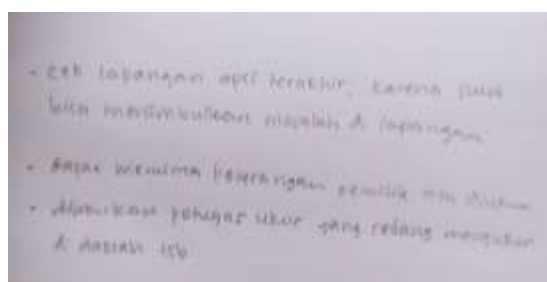 - cek lapangan opsi terakhir, karena
bisa menimbulkan masalah di lapangan
- Dapat menerima keterangan pemilik
- petugas ukur yang sedang mengukur
di daerah tsb